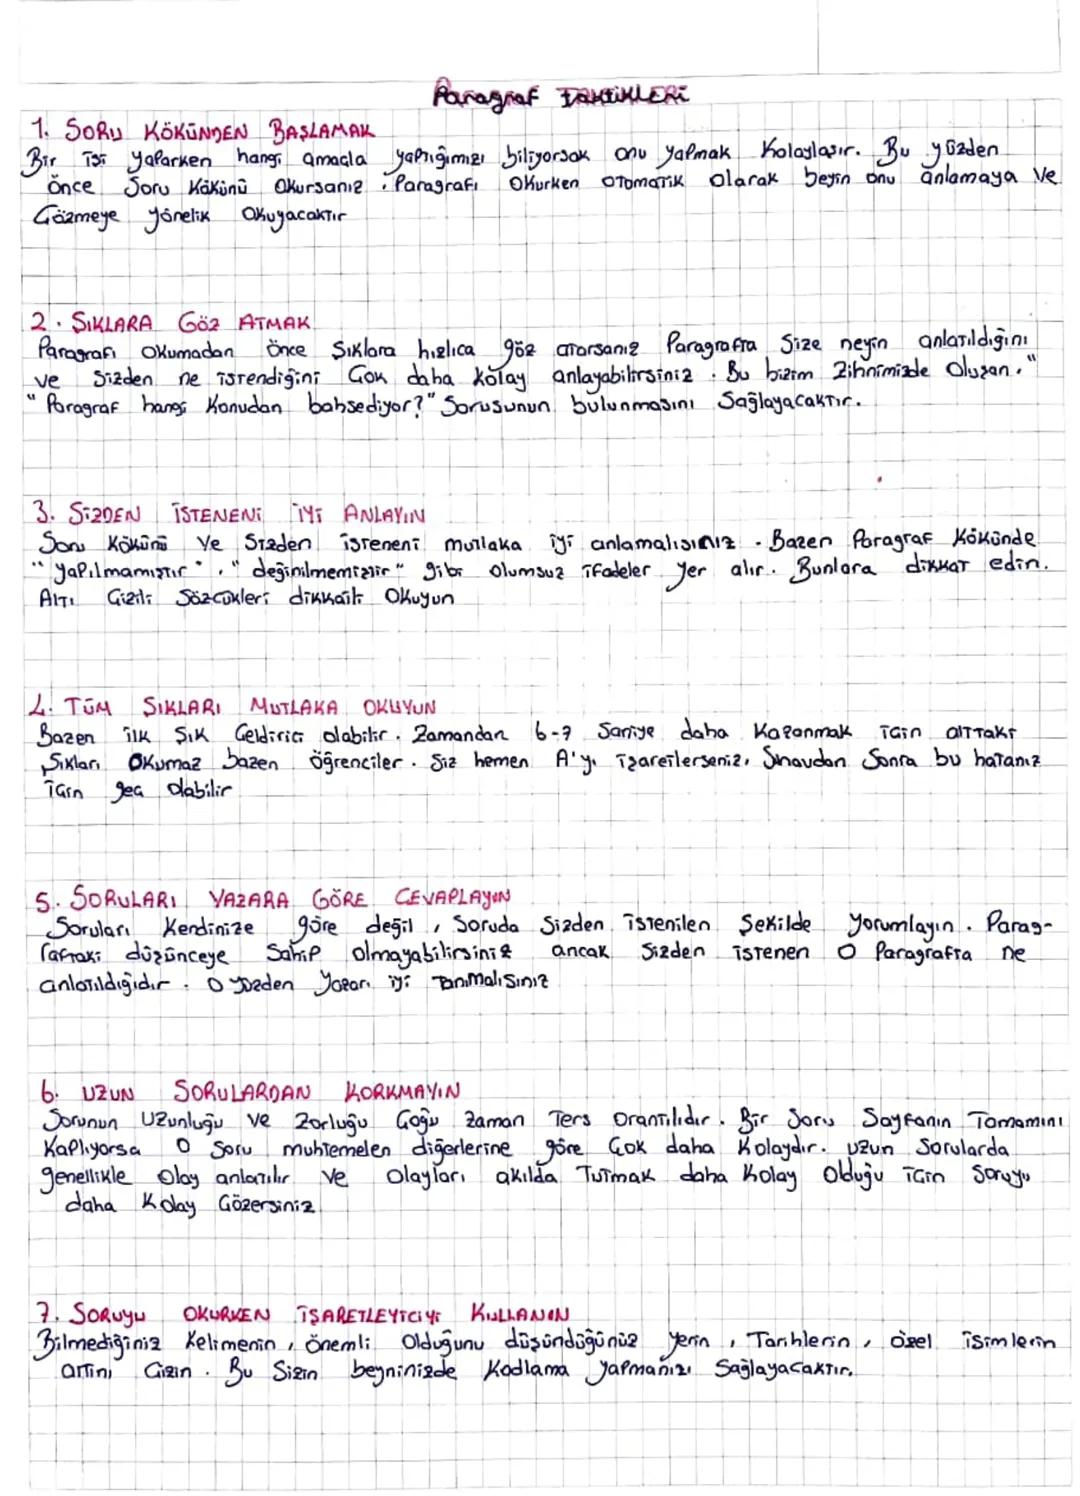 Paragraf TAKTİKLERİ
1. SORU KÖKÜNDEN BAŞLAMAK
Bir işi yaparken hangi amaçla yaptığımızı biliyorsak onu yapmak kolaylaşır. Bu yüzden
önce soru kökünü okursanız. Paragrafı okurken otomatik olarak beyin onu anlamaya ve
Çözmeye yönelik okuyacaktır
2. ŞIKLARA GÖZ ATMAK
Paragrafı okumadan önce şıklara hızlıca göz atarsanız Paragrafta size neyin anlatıldığını
ve sizden ne istendiğini çok daha kolay anlayabilirsiniz. Bu bizim zihnimizde oluşan."
"Paragraf hangi konudan bahsediyor?" Sorusunun bulunmasını sağlayacaktır.
3. SİZDEN İSTENENİ İYİ ANLAYIN
Soru kökünü ve sizden isteneni mutlaka iyi anlamalısınız. Bazen Paragraf kökünde
"yapılmamıştır", "değinilmemiştir" gibi olumsuz ifadeler yer alır. Bunlara dikkat edin.
Altı çizili sözcükleri dikkatli okuyun
4. TÜM ŞIKLARI MUTLAKA OKUYUN
Bazen ilk şık çeldirici olabilir. Zamandan 6-7 saniye daha kazanmak için alttaki
şıkları okumaz bazen öğrenciler. Siz hemen A'yı işaretlerseniz, sınavdan sonra bu hatanız
için geç olabilir
5. SORULARI YAZARA GÖRE CEVAPLAYIN
Soruları kendinize göre değil, soruda sizden istenilen şekilde yorumlayın. Parag-
raftaki düşünceye sahip olmayabilirsiniz ancak sizden istenen o Paragrafta ne
anlatıldığıdır. O yüzden yazarı iyi tanımalısınız
6. UZUN SORULARDAN KORKMAYIN
Sorunun uzunluğu ve zorluğu çoğu zaman ters orantılıdır. Bir soru sayfanın tamamını
kaplıyorsa o soru muhtemelen diğerlerine göre çok daha kolaydır. Uzun sorularda
genellikle olay anlatılır ve olayları akılda tutmak daha kolay olduğu için soruyu
daha kolay çözersiniz
7. SORUYU OKURKEN İŞARETLEYİCİYİ KULLANIN
Bilmediğiniz kelimenin, önemli olduğunu düşündüğünüz yerin, tarihlerin, özel isimlerin
altını çizin. Bu sizin beyninizde kodlama yapmanızı sağlayacaktır.